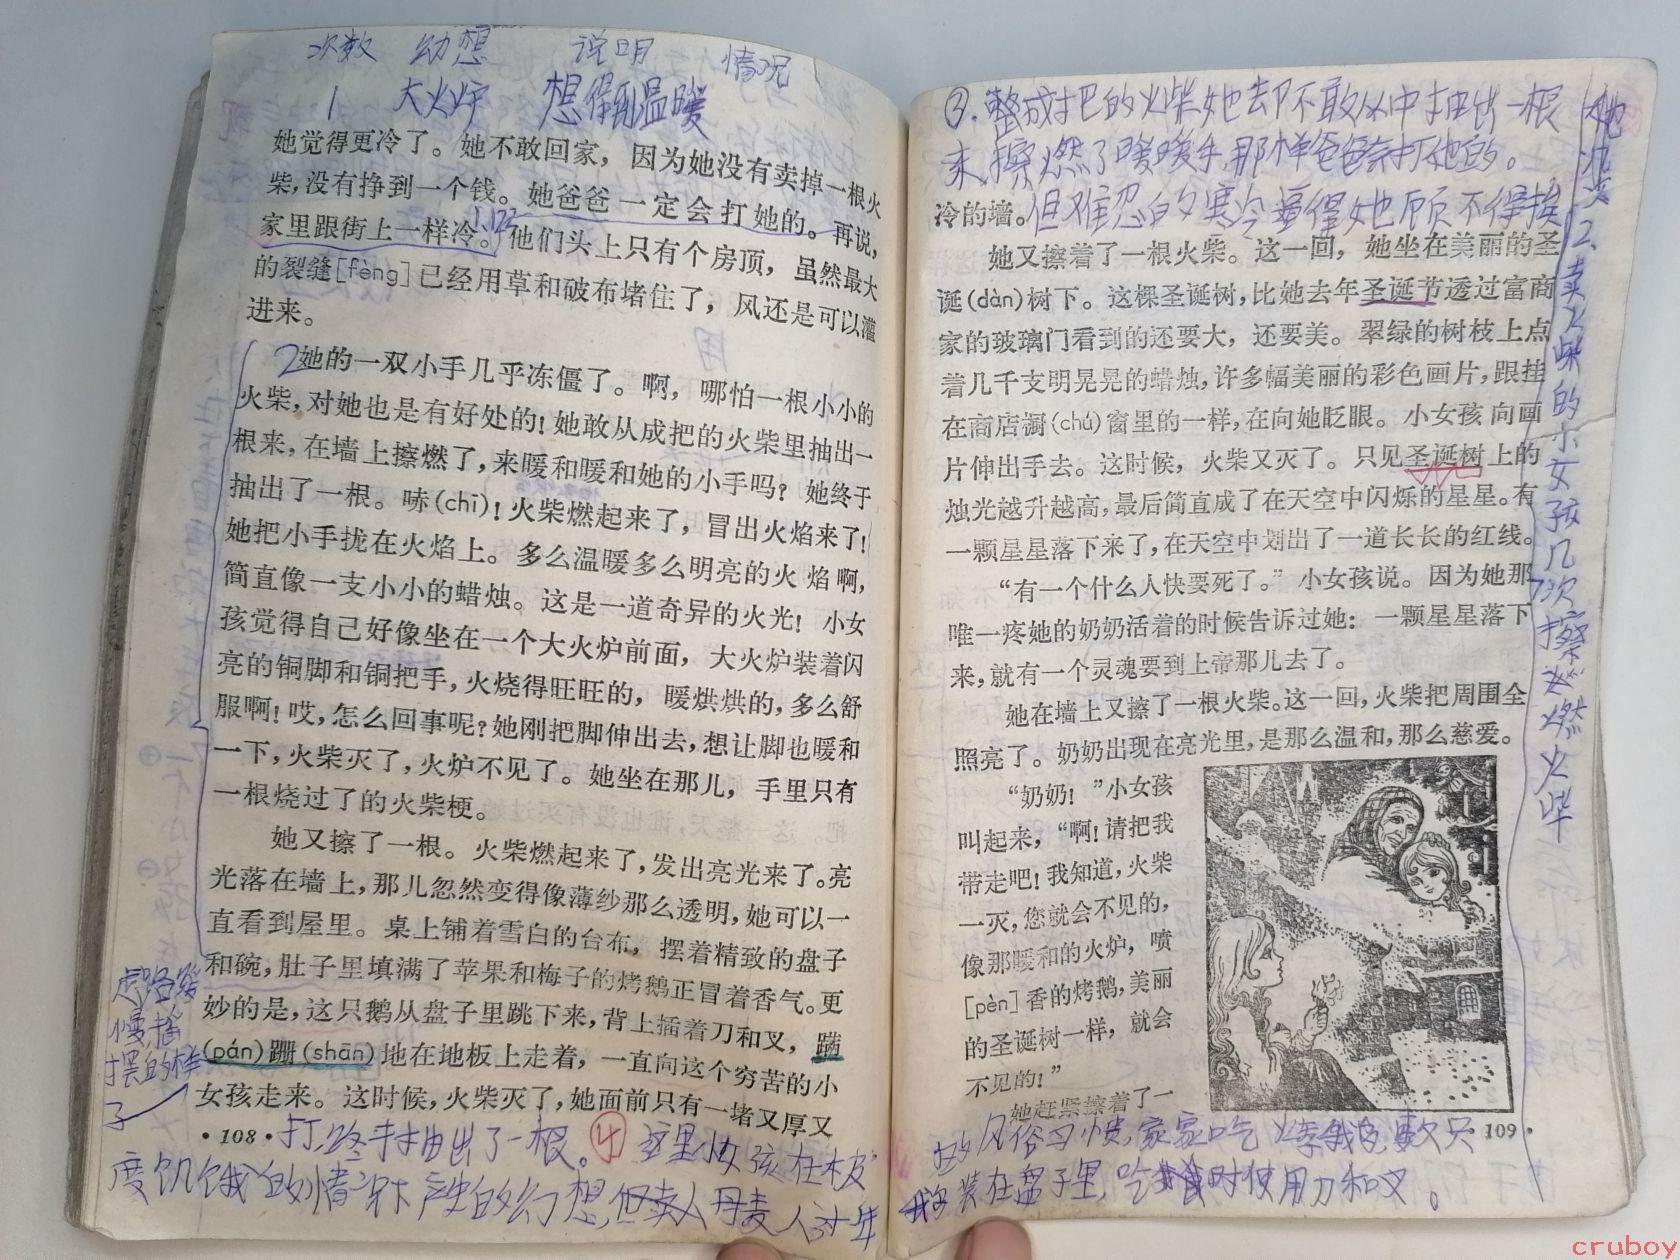 次数 幻想 说明 情况
1 大火炉 想得到温暖
她觉得更冷了。她不敢回家，因为她没有卖掉一根火
柴，没有挣到一个钱。她爸爸一定会打她的。再说，
家里跟街上一样冷。他们头上只有个房顶，虽然最大
的裂缝[fèng]已经用草和破布堵住了，风还是可以灌
进来。
2她的一双小手几乎冻僵了。啊，哪怕一根小小的
火柴，对她也是有好处的！她敢从成把的火柴里抽出一
根来，在墙上擦燃了，来暖和暖和她的小手吗？她终于
抽出了一根。哧(chī)！火柴燃起来了，冒出火焰来了！
她把小手拢在火焰上。多么温暖多么明亮的火焰啊，
简直像一支小小的蜡烛。这是一道奇异的火光！小女
孩觉得自己好像坐在一个大火炉前面，大火炉装着闪
亮的铜脚和铜把手，火烧得旺旺的，暖烘烘的，多么舒
服啊！哎，怎么回事呢？她刚把脚伸出去，想让脚也暖和
一下，火柴灭了，火炉不见了。她坐在那儿，手里只有
一根烧过了的火柴梗。
她又擦了一根。火柴燃起来了，发出亮光来了。亮
光落在墙上，那儿忽然变得像薄纱那么透明，她可以一
直看到屋里。桌上铺着雪白的台布，摆着精致的盘子
和碗，肚子里填满了苹果和梅子的烤鹅正冒着香气。更
妙的是，这只鹅从盘子里跳下来，背上插着刀和叉，蹒
(pán)跚(shān)地在地板上走着，一直向这个穷苦的小
女孩走来。这时候，火柴灭了，她面前只有一堵又厚又
走路缓
慢，摇
摆的样
子
·108·
抽出了一根。④这里小女孩在
度饥饿的情况下产生的幻想，但
③.整成把的火柴她却不敢从中抽出一根
来，擦燃了暖暖手，那样爸爸会打她的。
但难忍的寒冷逼得她顾不得挨
冷的墙。
她又擦着了一根火柴。这一回，她坐在美丽的圣
诞(dàn)树下。这棵圣诞树，比她去年圣诞节透过富商
家的玻璃门看到的还要大，还要美。翠绿的树枝上点
着几千支明晃晃的蜡烛，许多幅美丽的彩色画片，跟挂
在商店橱(chú)窗里的一样，在向她眨眼。小女孩向画
片伸出手去。这时候，火柴又灭了。只见圣诞树上的
烛光越升越高，最后简直成了在天空中闪烁的星星。有
一颗星星落下来了，在天空中划出了一道长长的红线。
“有一个什么人快要死了。”小女孩说。因为她那
唯一疼她的奶奶活着的时候告诉过她：一颗星星落下
来，就有一个灵魂要到上帝那儿去了。
她在墙上又擦了一根火柴。这一回，火柴把周围全
照亮了。奶奶出现在亮光里，是那么温和，那么慈爱。
“奶奶！”小女孩
叫起来，“啊！请把我
带走吧！我知道，火柴
一灭，您就会不见的，
像那暖和的火炉，喷
[pèn]香的烤鹅，美丽
的圣诞树一样，就会
不见的！”
她赶紧擦着了一
2、卖火柴的小女孩几次擦燃火柴
·109·
的风俗习惯，家家吃烤鹅，
装在盘子里，吃时使用刀和叉。
cruboy